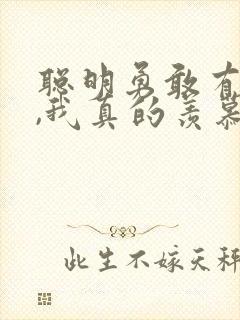 聪明勇敢有
,我真的羡慕
此生不嫁天秤